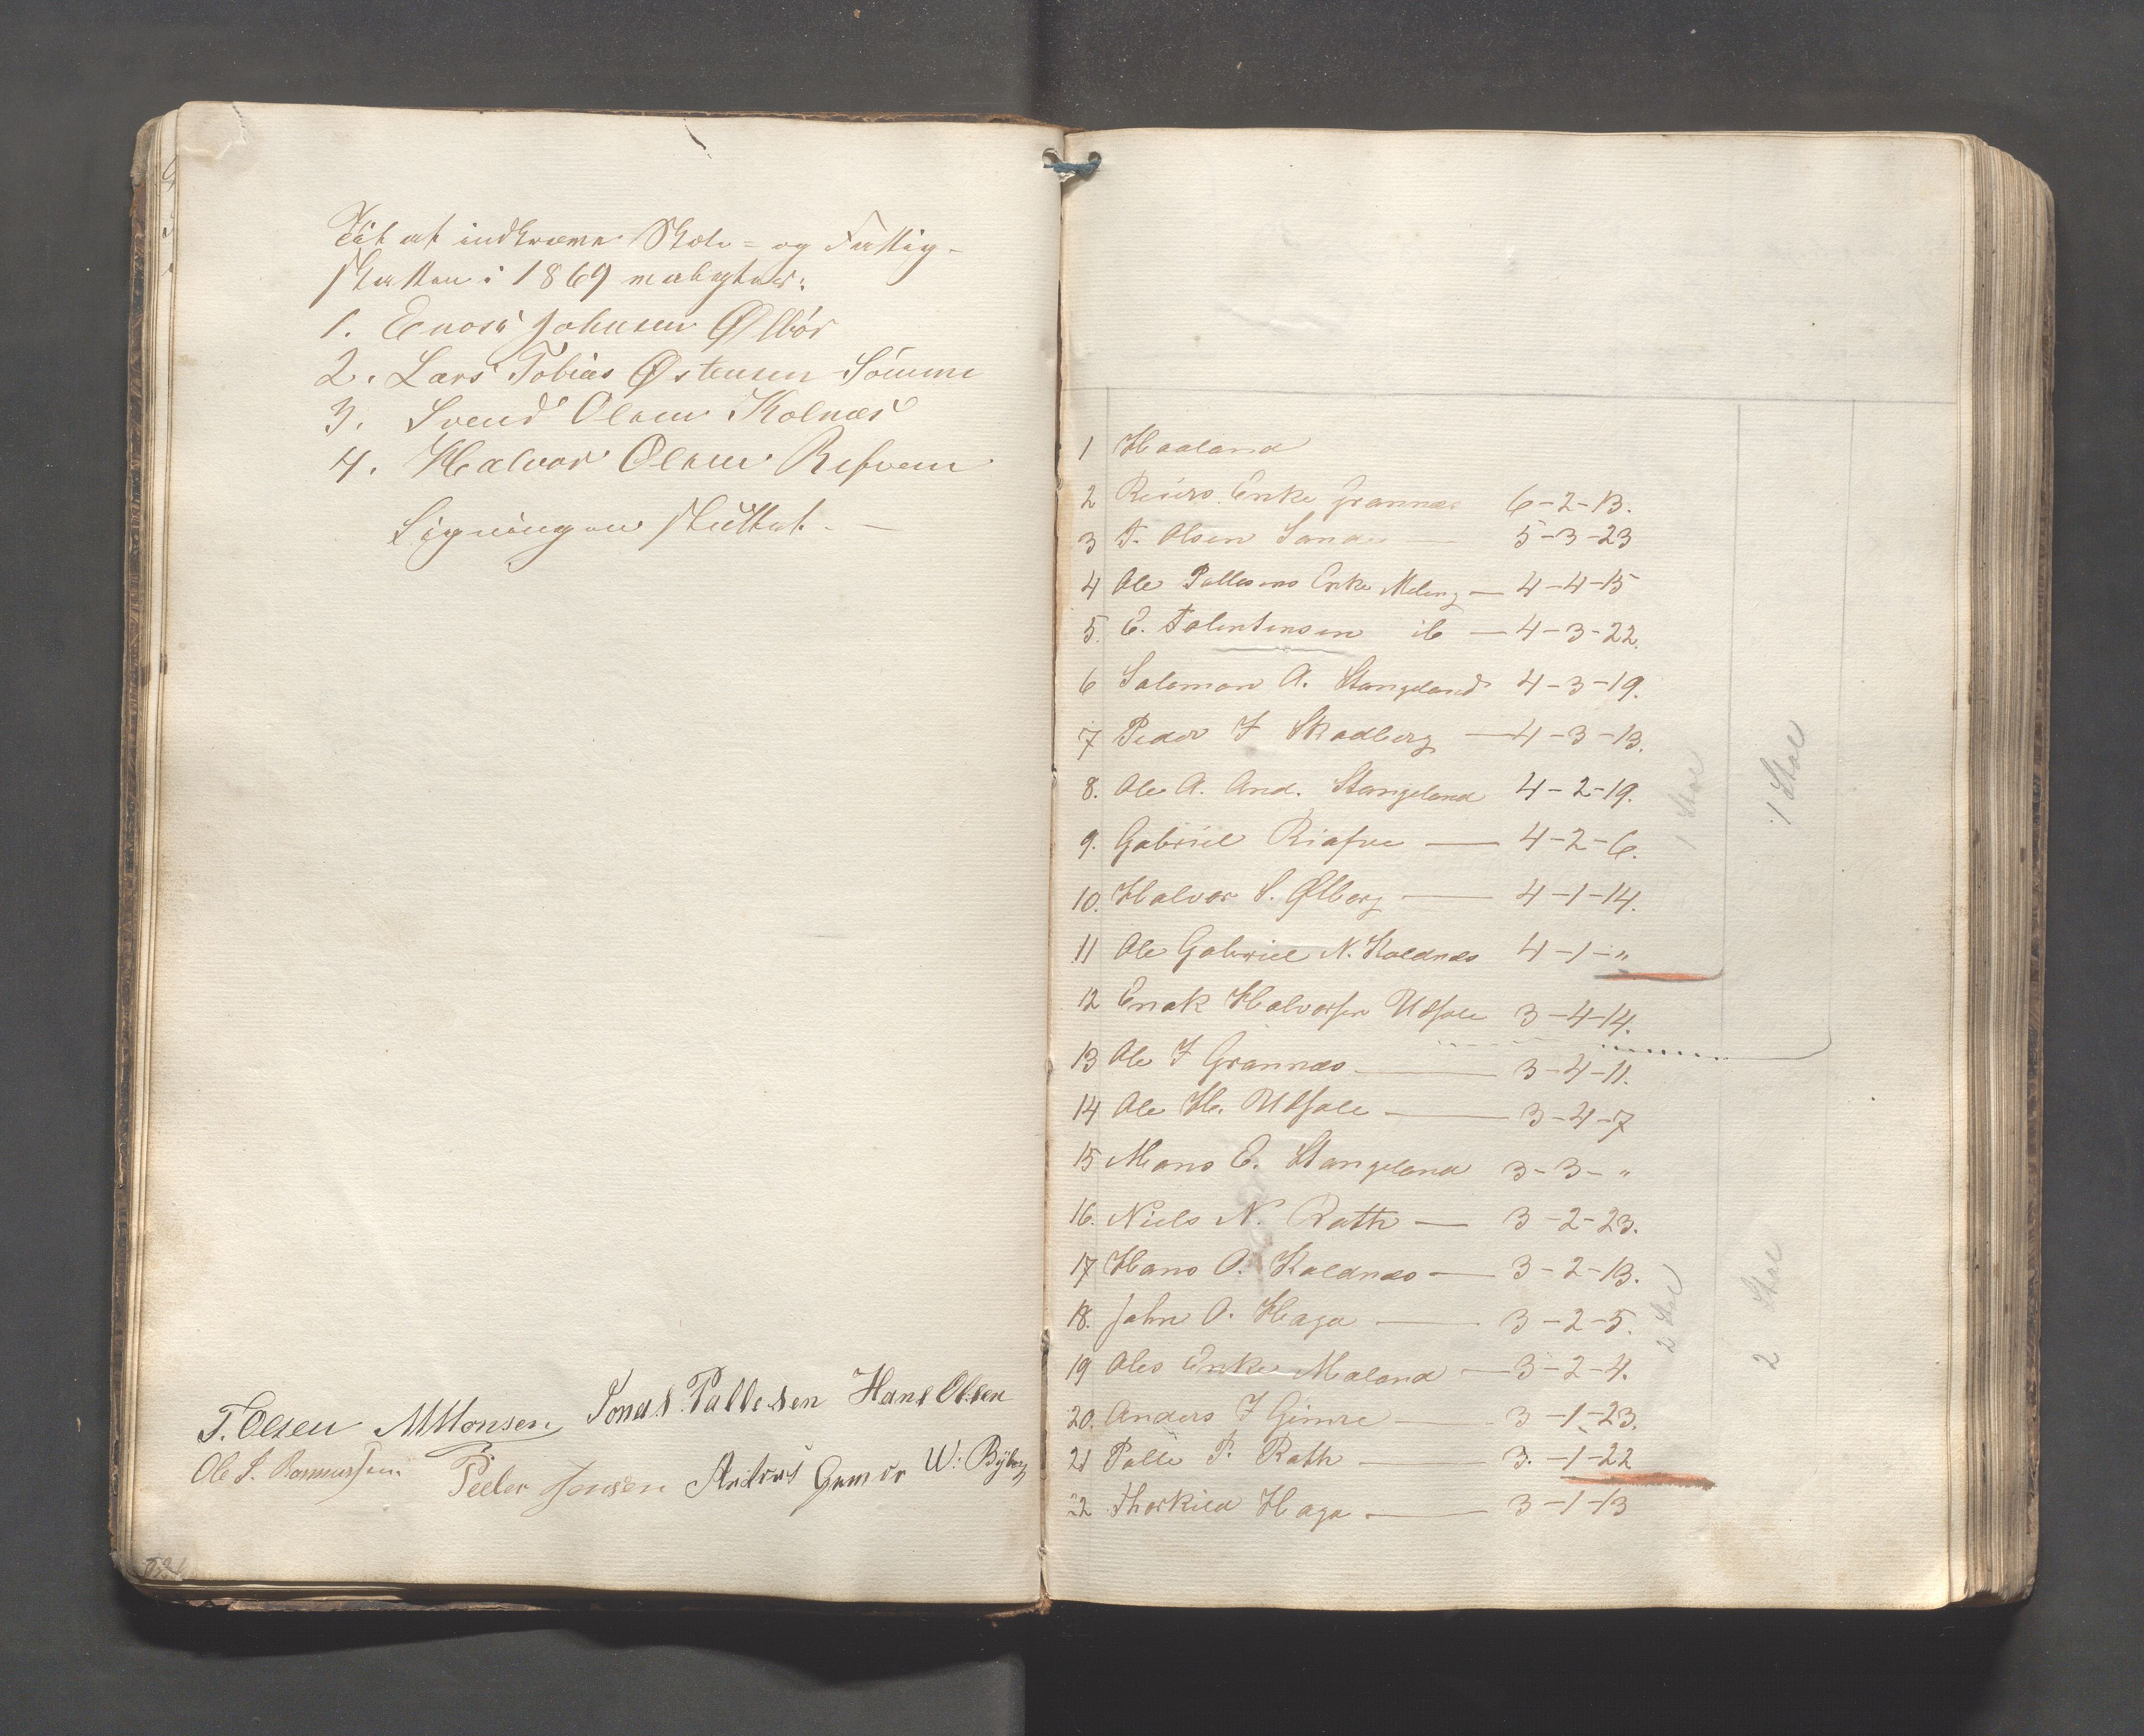 Til at indkræve Skole- og Fattig-
skatten i 1869 
1. Enok Johnsen Ølbør
2. Lars Tobias Østensen Sømme
3. Svend Olsen Kolnæs
4. Halvor Olsen Refvem
Ligningen sluttet. —
T. Olsen MMonsen Jonas Pallesen Hans Olsen
Ole S. Rasmussen. Peder Jensen Anders Gimre W: Byberg
1 Haaland
2 Reiers Enke Grannæs 6-2-13.
3 T. Olsen Sande — 5-3-23
4 Ole Pallesens Enke Meling — 4-4-15
5. E. Tolentinsen ib — 4-3-22.
6 Salomon A. Stangeland 4-3-19.
7 Peder I Skadberg — 4-3-13.
8. Ole A. And. Stangeland 4-2-19.
9. Gabriel Risfve — 4-2-6.
10. Halvor S. Ølberg — 4-1-14.
11 Ole Gabriel N. Koldnæs 4-1-"
12 Enok Halvorsen Utsole 3-4-14.
13 Ole I Grannæs — 3-4-11.
14 Ole H. Utsole — 3-4-7
15 Mons E. Stangeland 3-3-"
16. Niels N. Roth — 3-2-23.
17 Hans O. Koldnæs — 3-2-13.
18. John O. Haga — 3-2-5.
19 Oles Enke Maland — 3-2-4.
20. Anders I Gimre — 3-1-23.
21 Palle P. Roth — 3.-1-22
22 Thorkild Haga — 3-1-13
1 Stol
1 Stol
2 Stol
2 Stol